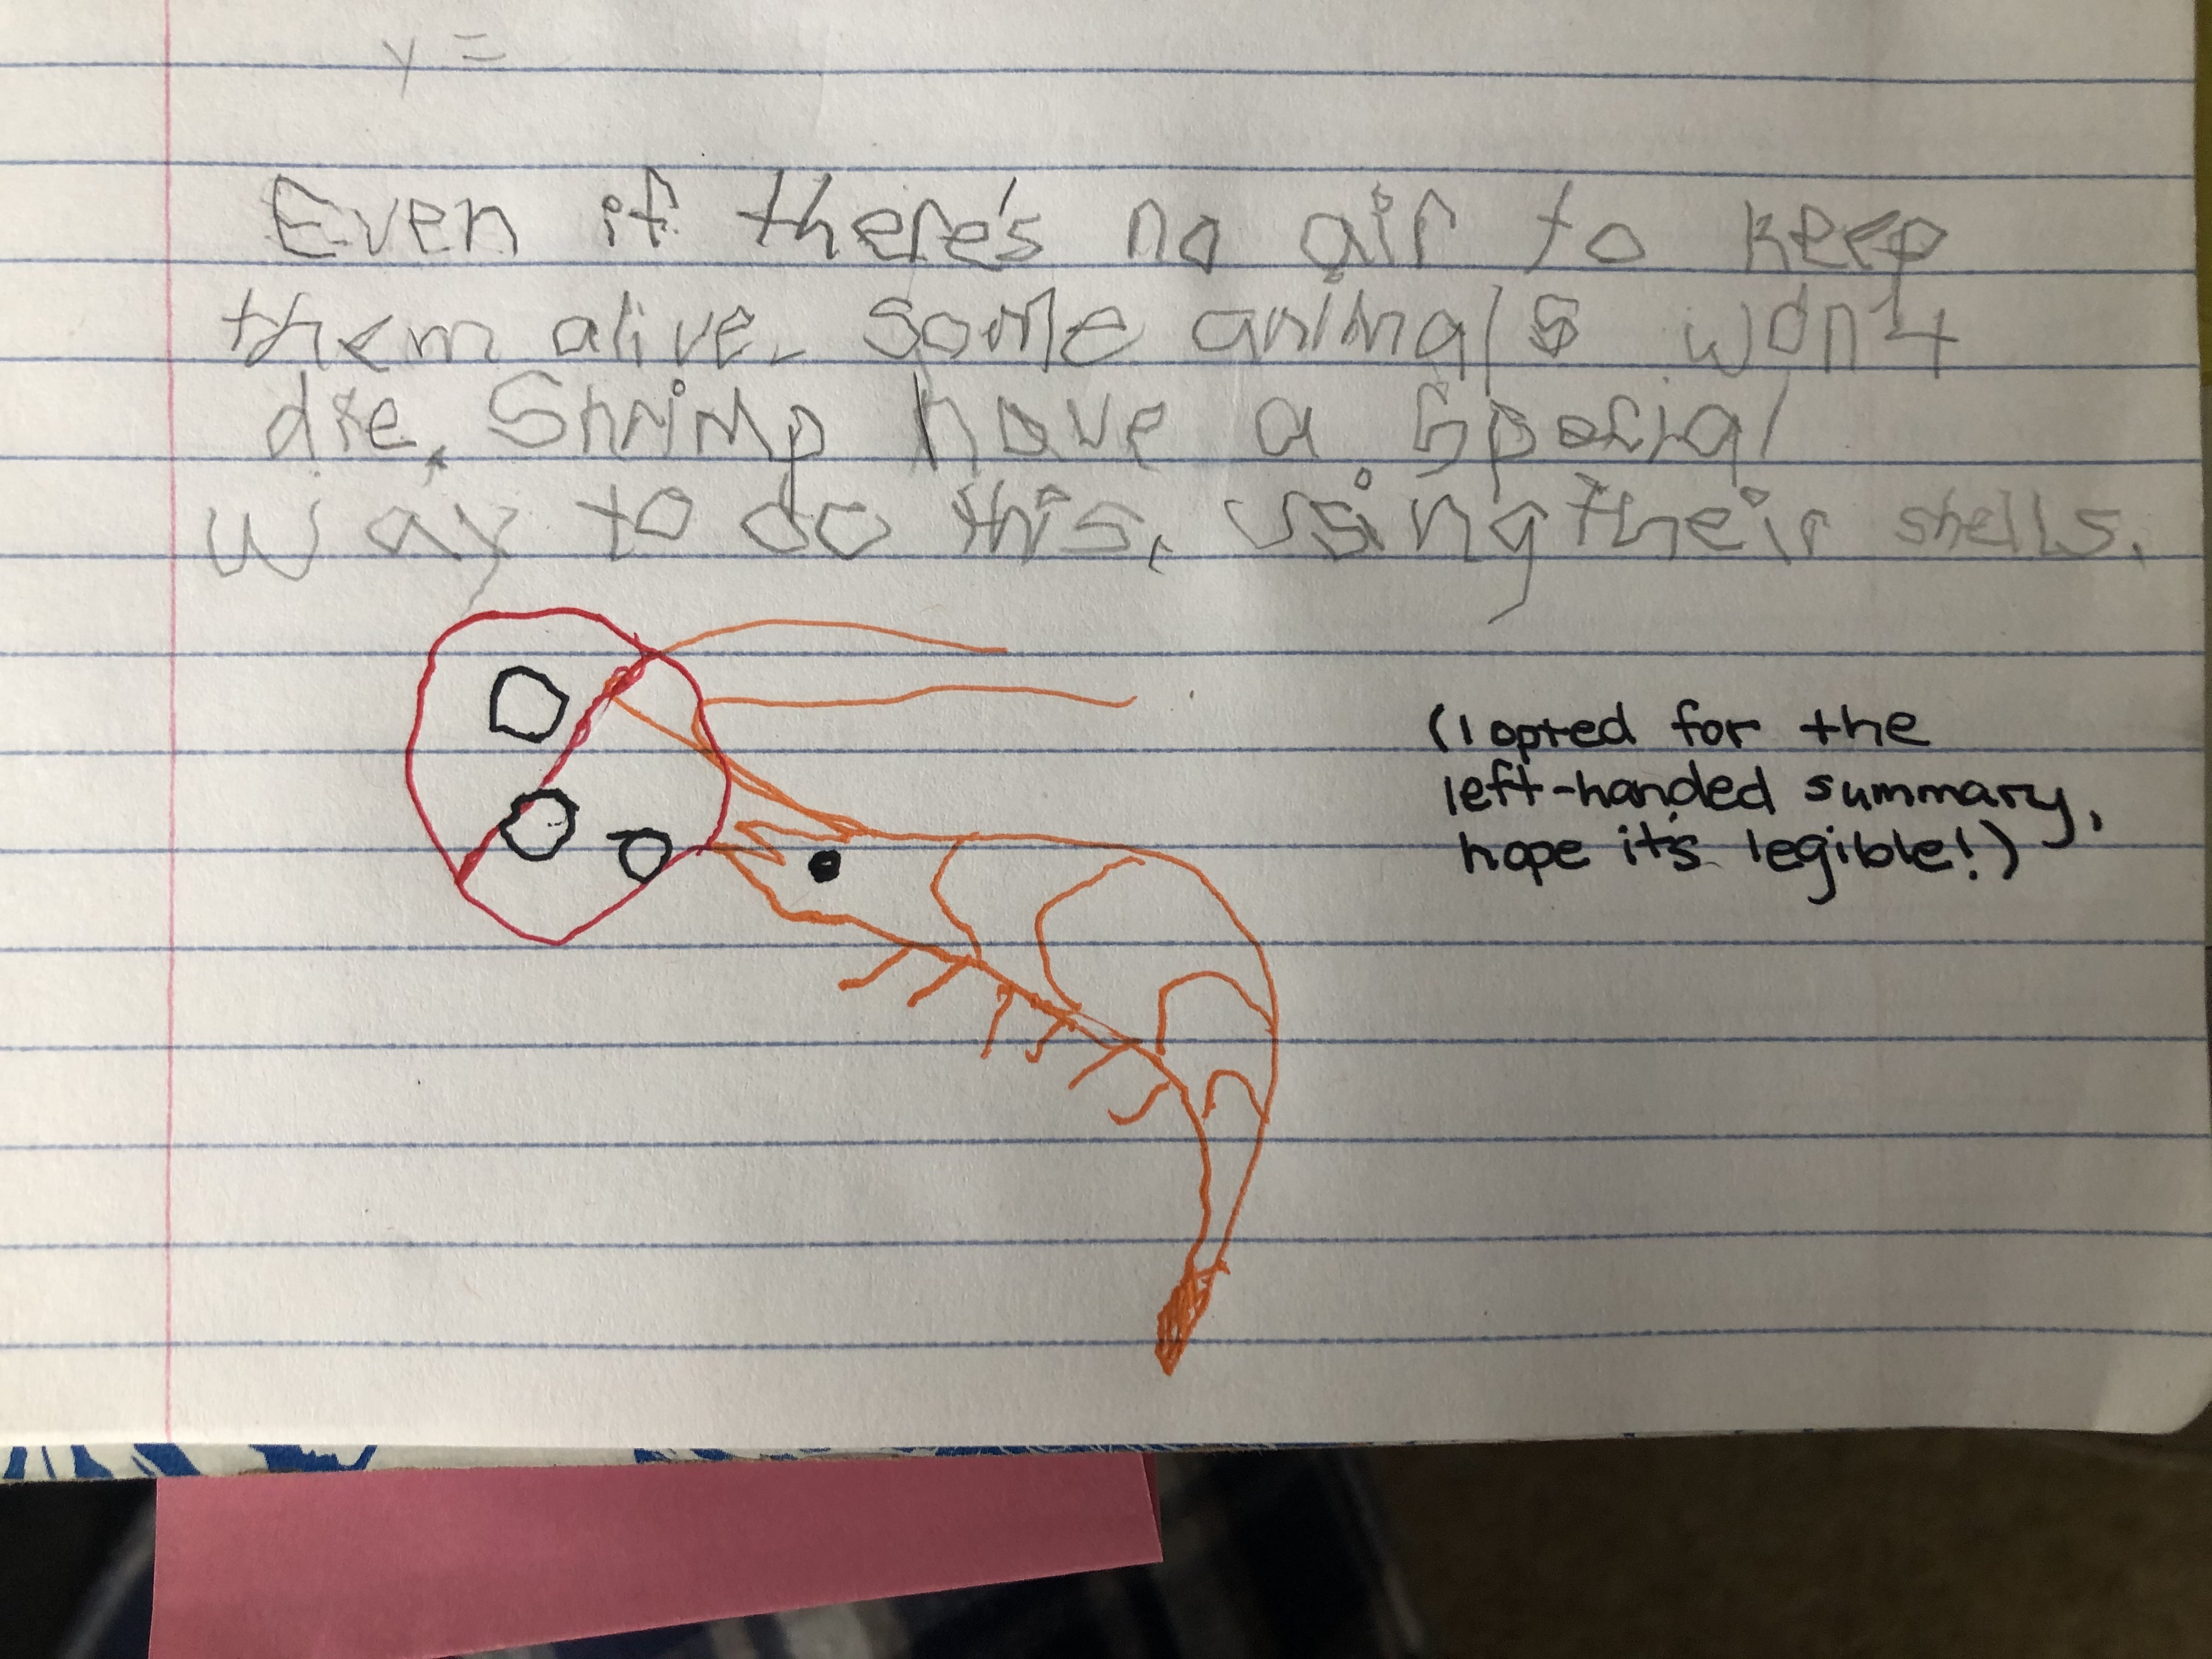 y =
Even if there's no air to keep
them alive. some animals won't
die. Shrimp have a special
way to do this, using their shells.
(I opted for the
left-handed summary,
hope it's legible!)